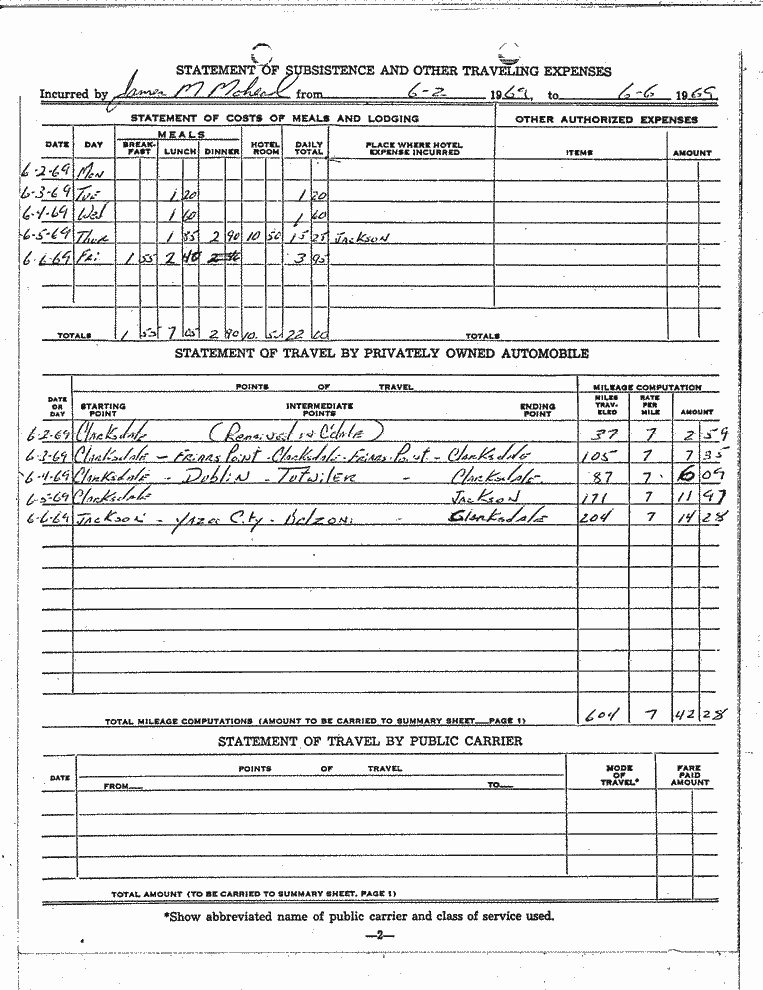 STATEMENT OF SUBSISTENCE AND OTHER TRAVELING EXPENSES
Incurred by James M Mohead from 6-2 1969, to 6-6 1969
STATEMENT OF COSTS OF MEALS AND LODGING OTHER AUTHORIZED EXPENSES
DATE DAY MEALS BREAK-FAST LUNCH DINNER HOTEL ROOM DAILY TOTAL PLACE WHERE HOTEL EXPENSE INCURRED ITEMS AMOUNT
6-2-69 Mon
6-3-69 Tue 1 20 1 20
6-4-69 Wed 1 60 1 60
6-5-69 Thur 1 85 2 90 10 50 15 25 Jackson
6-6-69 Fri 1 55 2 40 3 95
TOTALS 1 55 7 05 2 90 10. 50 22 00 TOTALS
STATEMENT OF TRAVEL BY PRIVATELY OWNED AUTOMOBILE
DATE OR DAY POINTS OF TRAVEL MILEAGE COMPUTATION
STARTING POINT INTERMEDIATE POINTS ENDING POINT MILES TRAV-ELED RATE PER MILE AMOUNT
6-2-69 Clarksdale (Remained in C'dale) 37 7 2 59
6-3-69 Clarksdale - Friars Point - Clarksdale - Friars Point - Clarksdale 105 7 7 35
6-4-69 Clarksdale - Dublin - Tutwiler - Clarksdale 87 7 6 09
6-5-69 Clarksdale Jackson 171 7 11 97
6-6-69 Jackson - Yazoo City - Belzoni - Clarksdale 204 7 14 28
TOTAL MILEAGE COMPUTATIONS (AMOUNT TO BE CARRIED TO SUMMARY SHEET—PAGE 1) 604 7 42 28
STATEMENT OF TRAVEL BY PUBLIC CARRIER
DATE POINTS OF TRAVEL MODE OF TRAVEL* FARE PAID AMOUNT
FROM— TO—
TOTAL AMOUNT (TO BE CARRIED TO SUMMARY SHEET, PAGE 1)
*Show abbreviated name of public carrier and class of service used.
—2—